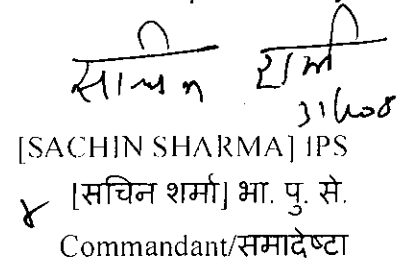 सचिन शर्मा
[SACHIN SHARMA] IPS
[सचिन शर्मा] भा. पु. से.
Commandant/समादेष्टा